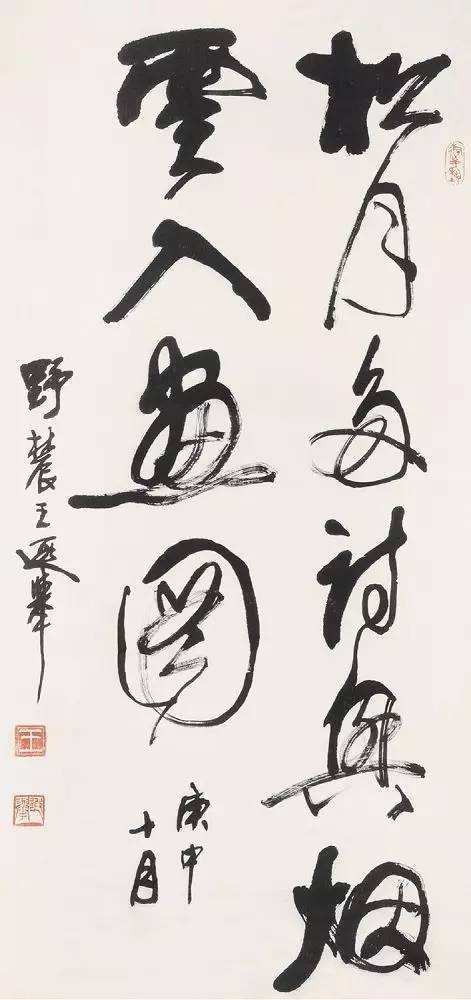 松月多詩興烟
雲入畫圖
庚申
十月
野農王遐舉
王